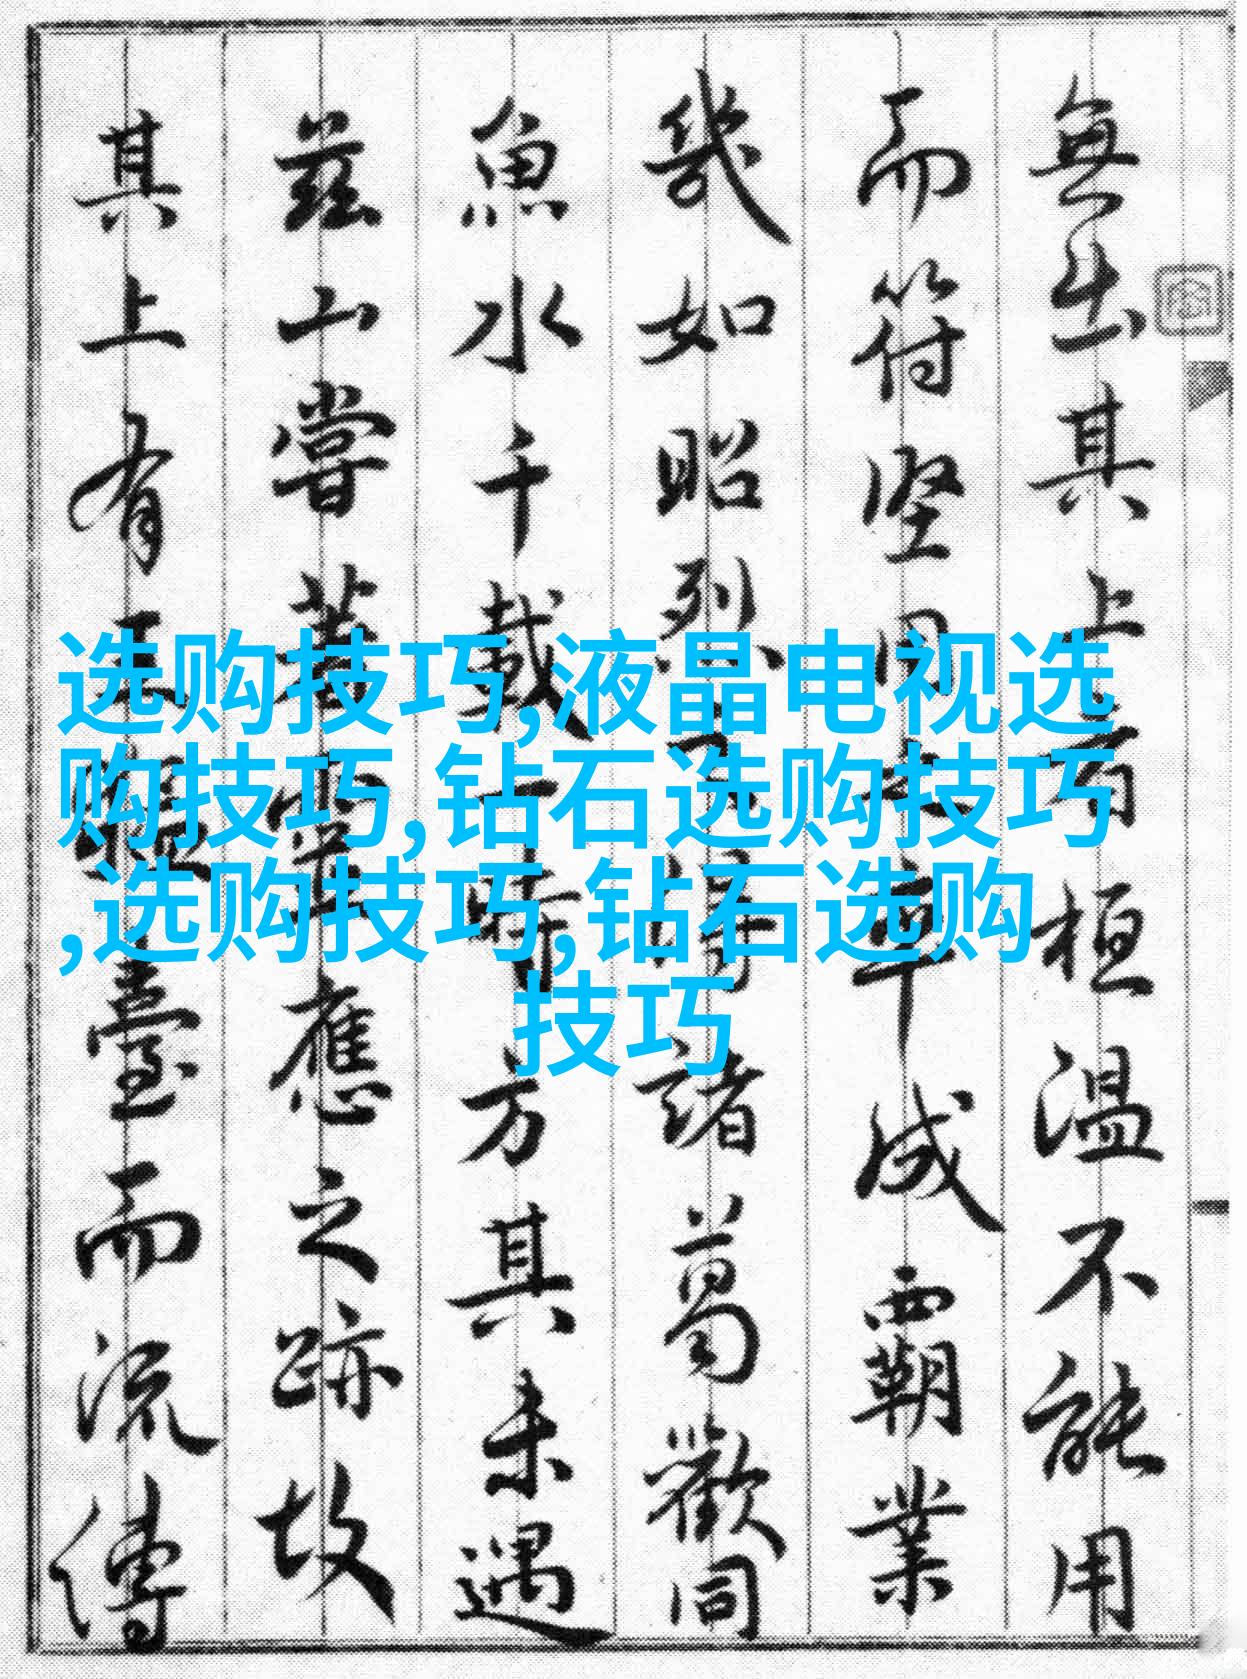 选购技巧,液晶电视选
购技巧,钻石选购技巧
,选购技巧,钻石选购
技巧
無出其上有桓温不能用
而符堅用之卒成霸業
幾如昭烈之得諸葛歡同
魚水千載一時方其未遇
茲山嘗著靈應之跡故
其上有臺而流傳